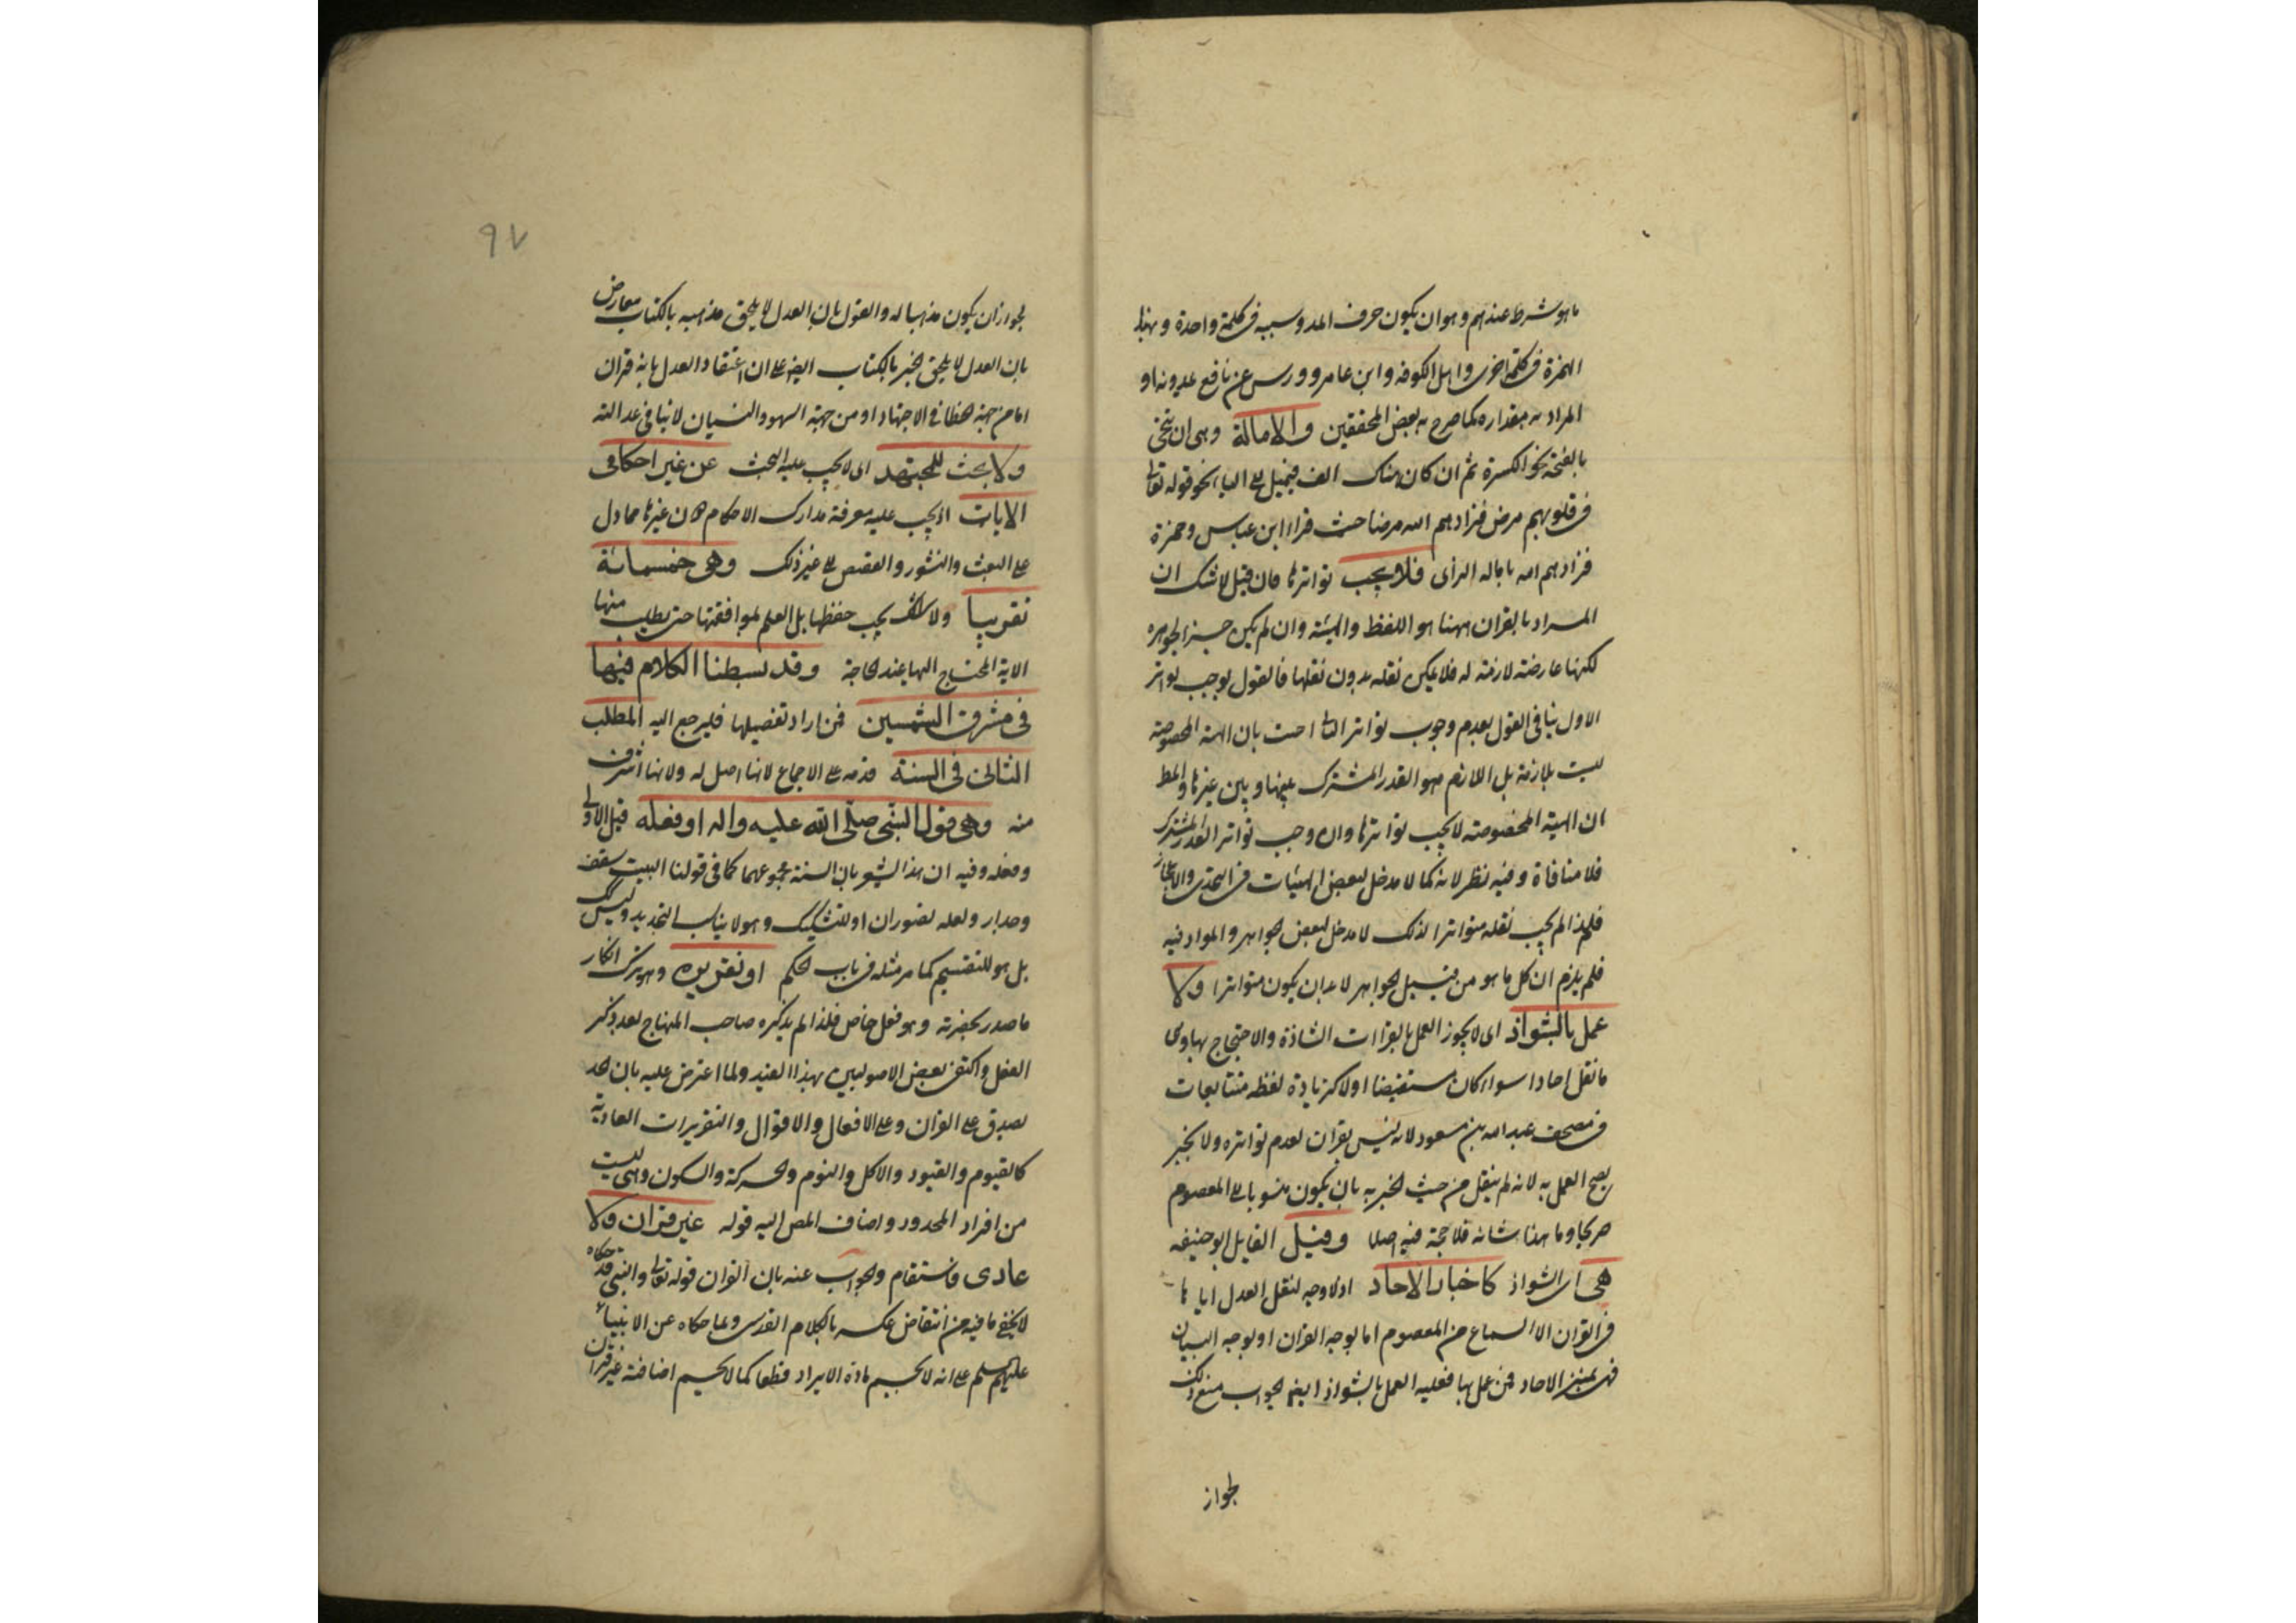 ما هو شرط عندهم وهو ان يكون حرف المد وسببه فى كلمة واحدة وبهذا
الهمزة فى كلمة اخرى واهل الكوفه وابن عامر وورس عن نافع يمدونه او
المراد به مقداره كما صرح به بعض المحققين والامالة وهى ان ينحى
بالفتحة نحو الكسرة ثم ان كان هناك الف فيميل الى الياء نحو قوله تعالى
فى قلوبهم مرض فزادهم الله مرضا حيث قراء ابن عباس وحمزة
فزادهم الله بامالة الزاى فلا يجب تواترها فان قيل لا شك ان
المراد بالقران ههنا هو اللفظ والهيئة وان لم يكن جزء لجوهره
لكنها عارضته لازمة له فلا يمكن نقله بدون نقلها فالقول بوجب تواتر
الاول ينافى القول بعدم وجوب تواتر الثانى اجيب بان الهيئة المخصوصة
ليست بلازمة بل اللازم هو القدر المشترك بينها وبين غيرها والمط
ان الهيئة المخصوصته لا يجب تواترها وان وجب تواتر القدر المشترك
فلا منافاة وفيه نظر لانه كما لا مدخل لبعض الهيئات فى التحدى والاعجاز
فلهذا لم يجب نقله متواترا لذلك لا مدخل لبعض الجواهر والمواد فيه
فلم يلزم ان كل ما هو من قبيل الجواهر لا بد ان يكون متواترا ولا
عمل بالشواذ اى لا يجوز العمل بالقراات الشاذة والاحتجاج بها وهى
ما نقل احادا سواء كان مستفيضا اولا كزيادة لفظه متتابعات
فى مصحف عبد الله بن مسعود لانه ليس بقران لعدم تواتره ولا بخبر
يصح العمل به لانه لم ينقل من حيث الخبريه بان يكون منسوبا الى المعصوم
صريحا وما هذا شانه فلا حجة فيه اصلا وقيل القايل ابو حنيفه
هى اى الشواذ كاخبار الاحاد اذ لا وجه لنقل العدل اياها
فى القران الا السماع من المعصوم اما بوجه القران او بوجه البيان
فهى بمنزلة الاحاد فمن عمل بها فعليه العمل بالشواذ ايضا الجواب منع ذلك
لجواز
٩٧
لجواز ان يكون مذهبا له والقول بان العدل لا يلحق مذهبه بالكتاب معارض
بان العدل لا يلحق الخبر بالكتاب ايضا على ان اعتقاد العدل بانه قران
اما من جهة الخطا فى الاجتهاد او من جهة السهو والنسيان لا ينافى عدالته
ولا بحث للمجتهد اى لا يجب عليه البحث عن غير احكامى
الايات اذ يجب عليه معرفة مدارك الاحكام دون غيرها مما دل
على البعث والنشور والقصص الى غير ذلك وهى خمسمائة
تقريبا ولا يجب حفظها بل العلم بمواقعها حتى يطلب منها
الاية المحتاج اليها عند الحاجة وقد بسطنا الكلام فيها
فى مشرق الشمسين فمن اراد تفصيلها فليرجع اليه المطلب
الثانى فى السنة قدمه على الاجماع لانها اصل له ولانها اشرف
منه وهى قول النبى صلى الله عليه واله او فعله قيل الاولى
وفعله وفيه ان هذا يشعر بان السنة مجموعهما كما فى قولنا البيت سقف
وجدار ولعله تصور ان او للتشكيك وهو لا يناسب التحديد وليس كك
بل هو للتقسيم كما مر مثله فى باب الحكم او تقريره وهو ترك انكار
ما صدر بحضرته وهو فعل خاص فلذا لم يذكره صاحب المنهاج بعد ذكر
الفعل واكتفى بعض الاصوليين بهذا القيد ولما اعترض عليه بان الحد
يصدق على القران وعلى الافعال والاقوال والتقريرات العادية
كالقيوم والقعود والاكل والنوم والحركة والسكون وهى ليست
من افراد المحدود واضاف المص اليه قوله غير قران ولا
عادى فاستقام والجواب عنه بان القران قوله تعالى والنبى قد حكاه
لا يخفى ما فيه من انتقاض عكسه بالكلام القدسى وبما حكاه عن الانبياء
عليهم السلم على انه لا يحسم مادة الايراد قطعا كما لا يحسم اضافة غير قران